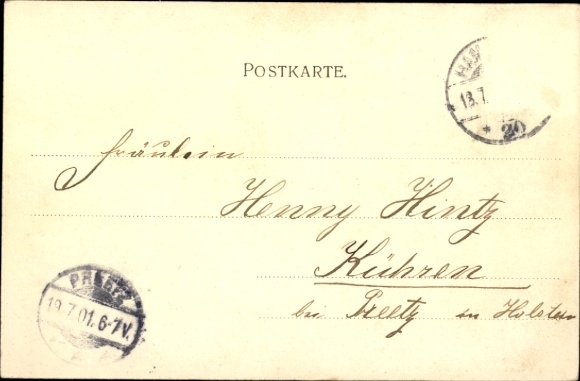 POSTKARTE.
HAM
13.7.
* 20
Fräulein
Henny Hintz
Kühren
bei Preetz in Holstein
PREETZ
19.7.01.6-7V.